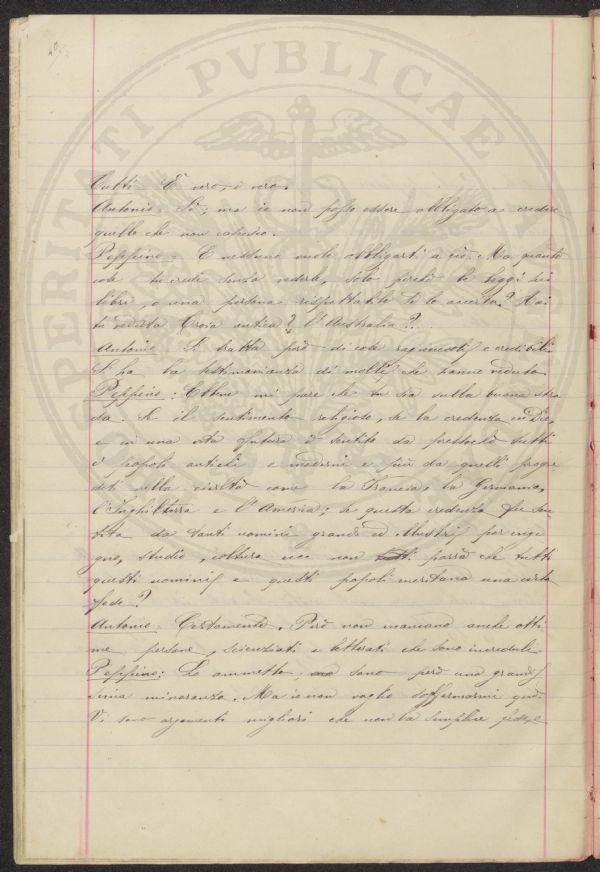 PERITATI PVBLICAE
Tutti. È vero, è vero.
Antonio. Sì; ma io non posso essere obbligato a credere
quello che non capisco.
Peppino. E nessuno vuole obbligarti a ciò. Ma quante
cose tu credi senza vederle, solo perchè le leggi nei
libri, o una persona rispettabile te le accerta? Hai
tu veduta Troia antica? L'Australia?..
Antonio. Si tratta però di cose ragionevoli e credibili.
Si ha la testimonianza di molti, che hanno veduto.
Peppino: Ebbene mi pare che tu sia sulla buona stra
da. Se il sentimento religioso, se la credenza in Dio,
e in una vita futura è sentita da pressochè tutti
i popoli antichi e moderni e più da quelli progre
diti nella civiltà come la Francia, la Germania,
l'Inghilterra e l'America; se questa credenza fu sen
tita da tanti uomini grandi ed illustri per inge
gno, studio, coltura ecc non parrà che tutti
questi uomini e questi popoli meritano una certa
fede?
Antonio. Certamente. Però non mancano anche otti
me persone, scienziati e letterati che sono increduli.
Peppino: Lo ammetto; sono però una grandis
sima minoranza. Ma io non voglio soffermarmi qui.
Vi sono argomenti migliori che non la semplice fede, e